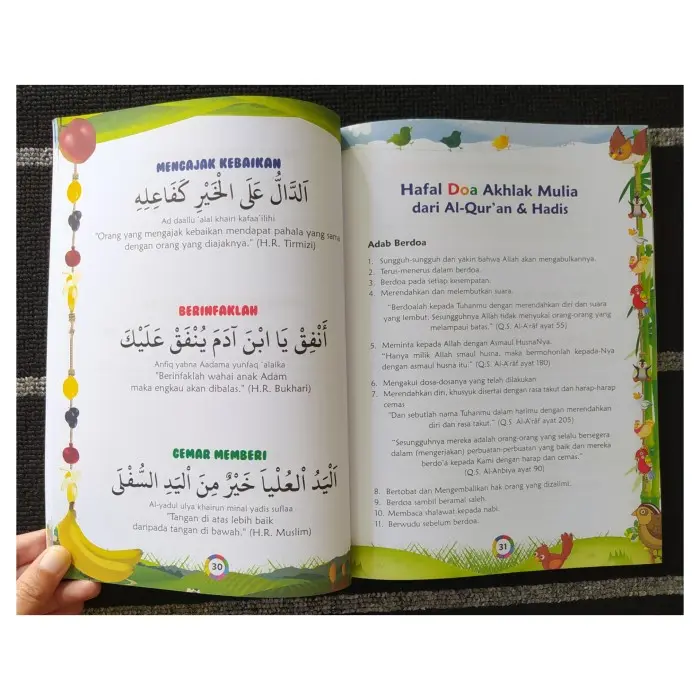 MENGAJAK KEBAIKAN
اَلدَّالُّ عَلَى الْخَيْرِ كَفَاعِلِهِ
Ad daallu `alal khairi kafaa`ilihi
"Orang yang mengajak kebaikan mendapat pahala yang sama
dengan orang yang diajaknya." (H.R. Tirmizi)
BERINFAKLAH
أَنْفِقْ يَا ابْنَ آدَمَ يُنْفَقْ عَلَيْكَ
Anfiq yabna Aadama yunfaq `alaika
"Berinfaklah wahai anak Adam
maka engkau akan dibalas." (H.R. Bukhari)
GEMAR MEMBERI
اَلْيَدُ الْعُلْيَا خَيْرٌ مِنَ الْيَدِ السُّفْلَى
Al-yadul ulya khairun minal yadis suflaa
"Tangan di atas lebih baik
daripada tangan di bawah." (H.R. Muslim)
30
Hafal Doa Akhlak Mulia
dari Al-Qur'an & Hadis
Adab Berdoa
1. Sungguh-sungguh dan yakin bahwa Allah akan mengabulkannya.
2. Terus-menerus dalam berdoa.
3. Berdoa pada setiap kesempatan.
4. Merendahkan dan melemburkan suara.
"Berdoalah kepada Tuhanmu dengan merendahkan diri dan suara
yang lembut. Sesungguhnya Allah tidak menyukai orang-orang yang
melampaui batas." (Q.S. Al-A'râf ayat 55)
5. Meminta kepada Allah dengan Asmaul HusnaNya.
"Hanya milik Allah smaul husna, maka bermohonlah kepada-Nya
dengan asmaul husna itu." (Q.S. Al-A'râf ayat 180)
6. Mengakui dosa-dosanya yang telah dilakukan
7. Merendahkan diri, khusyuk disertai dengan rasa takut dan harap-harap
cemas
"Dan sebutlah nama Tuhanmu dalam hatimu dengan merendahkan
diri dan rasa takut." (Q.S. Al-A'râf ayat 205)
"Sesungguhnya mereka adalah orang-orang yang selalu bersegera
dalam (mengerjakan) perbuatan-perbuatan yang baik dan mereka
berdo'a kepada Kami dengan harap dan cemas."
(Q.S. Al-Anbiya ayat 90)
8. Bertobat dan Mengembalikan hak orang yang dizalimi.
9. Berdoa sambil beramal saleh.
10. Membaca shalawat kepada nabi.
11. Berwudu sebelum berdoa.
31